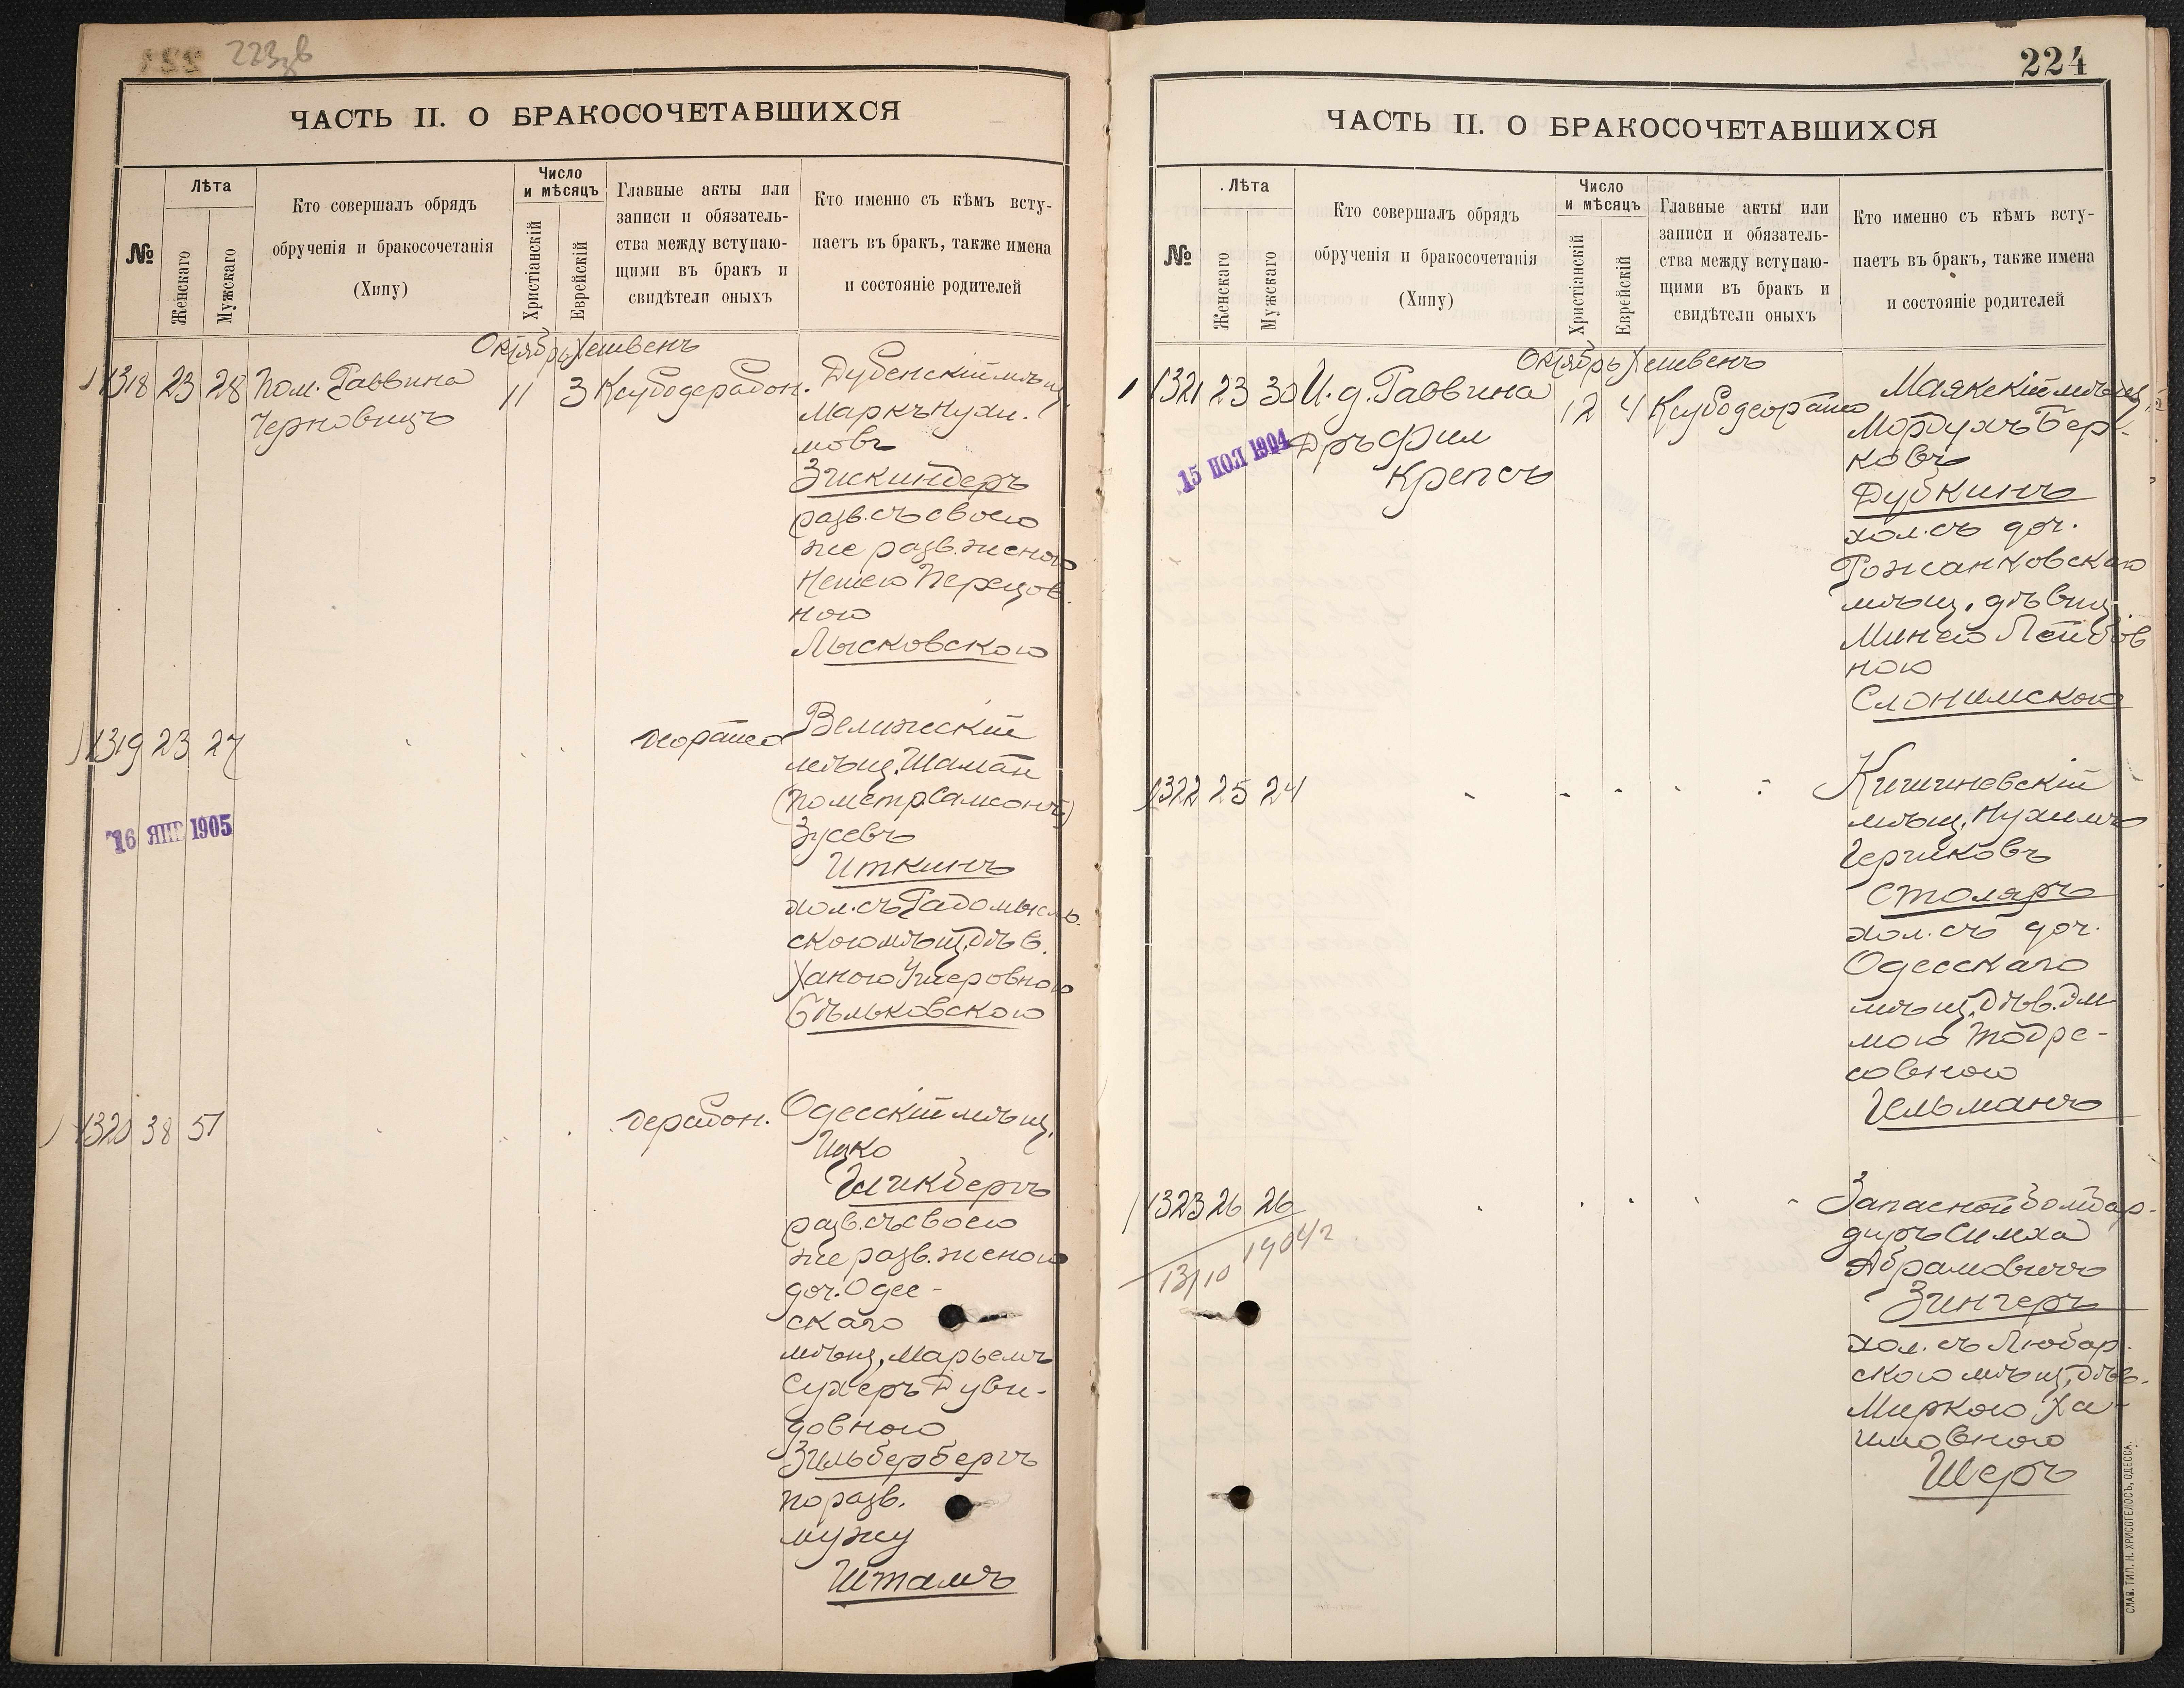 223 об
ЧАСТЬ II. О БРАКОСОЧЕТАВШИХСЯ
№
Лѣта
Женскаго
Мужскаго
Кто совершалъ обрядъ
обрученія и бракосочетанія
(Хипу)
Число
и мѣсяцъ
Христіанскій
Еврейскій
Главные акты или
записи и обязатель-
ства между вступаю-
щими въ бракъ и
свидѣтели оныхъ
Кто именно съ кѣмъ всту-
паетъ въ бракъ, также имена
и состояніе родителей
Октябрь Хешвенъ
1318 23 28 Пом. Раввина
Черновицъ
11 3 Ксубодерабон.
Дубенскій мѣщ.
Маркъ Нухи-
мовъ
Зискиндеръ
разв. съ своею
же разв. женою
Нешею Перецов
ною
Лысковскою
1319 23 27
деорайсо
Велижскій
мѣщ. Шаман
(по метр. Самсонъ)
Зусевъ
Иткинъ
хол. съ Радомысль
скою мѣщ. дѣв.
Ханою Умеровною
Бѣльковскою
16 ЯНВ 1905
1320 38 51
дерабон.
Одесскій мѣщ.
Ицко
Гликбергъ
разв. съ своею
же разв. женою
доч. Одес-
скаго
мѣщ. Марьемъ
Сухеръ Дуви-
довною
Зильбербергъ
по разв.
мужу
Штамъ
224
ЧАСТЬ II. О БРАКОСОЧЕТАВШИХСЯ
№
Лѣта
Женскаго
Мужскаго
Кто совершалъ обрядъ
обрученія и бракосочетанія
(Хипу)
Число
и мѣсяцъ
Христіанскій
Еврейскій
Главные акты или
записи и обязатель-
ства между вступаю-
щими въ бракъ и
свидѣтели оныхъ
Кто именно съ кѣмъ всту-
паетъ въ бракъ, также имена
и состояніе родителей
Октябрь Хешвенъ
1321 23 30 И. д. Раввина
Дръ Фил
Крепсъ
12 4 Ксубодеорайсо
Маякскій мѣщ.
Мордухъ Бер-
ковъ
Дубкинъ
хол. съ доч.
Рожанковскаго
мѣщ. дѣвиц.
Минею Лейбов
ною
Слонимскою
15 НОЯ 1904
1322 25 24
Кишиновскій
мѣщ. Нухимъ
Гершковъ
Столяръ
хол. съ доч.
Одесскаго
мѣщ. дѣв. Эм
мою Тодре-
совною
Гельманъ
1323 26 26
13/10 19042
Запасной бомбар-
диръ Симха
Абрамовичъ
Зингеръ
хол. съ Любар-
скою мѣщ. дѣв.
Миркою Ха-
имовною
Шеръ
СЛАВ. ТИП. Н. ХРИСОГЕЛОСЪ, ОДЕССА.